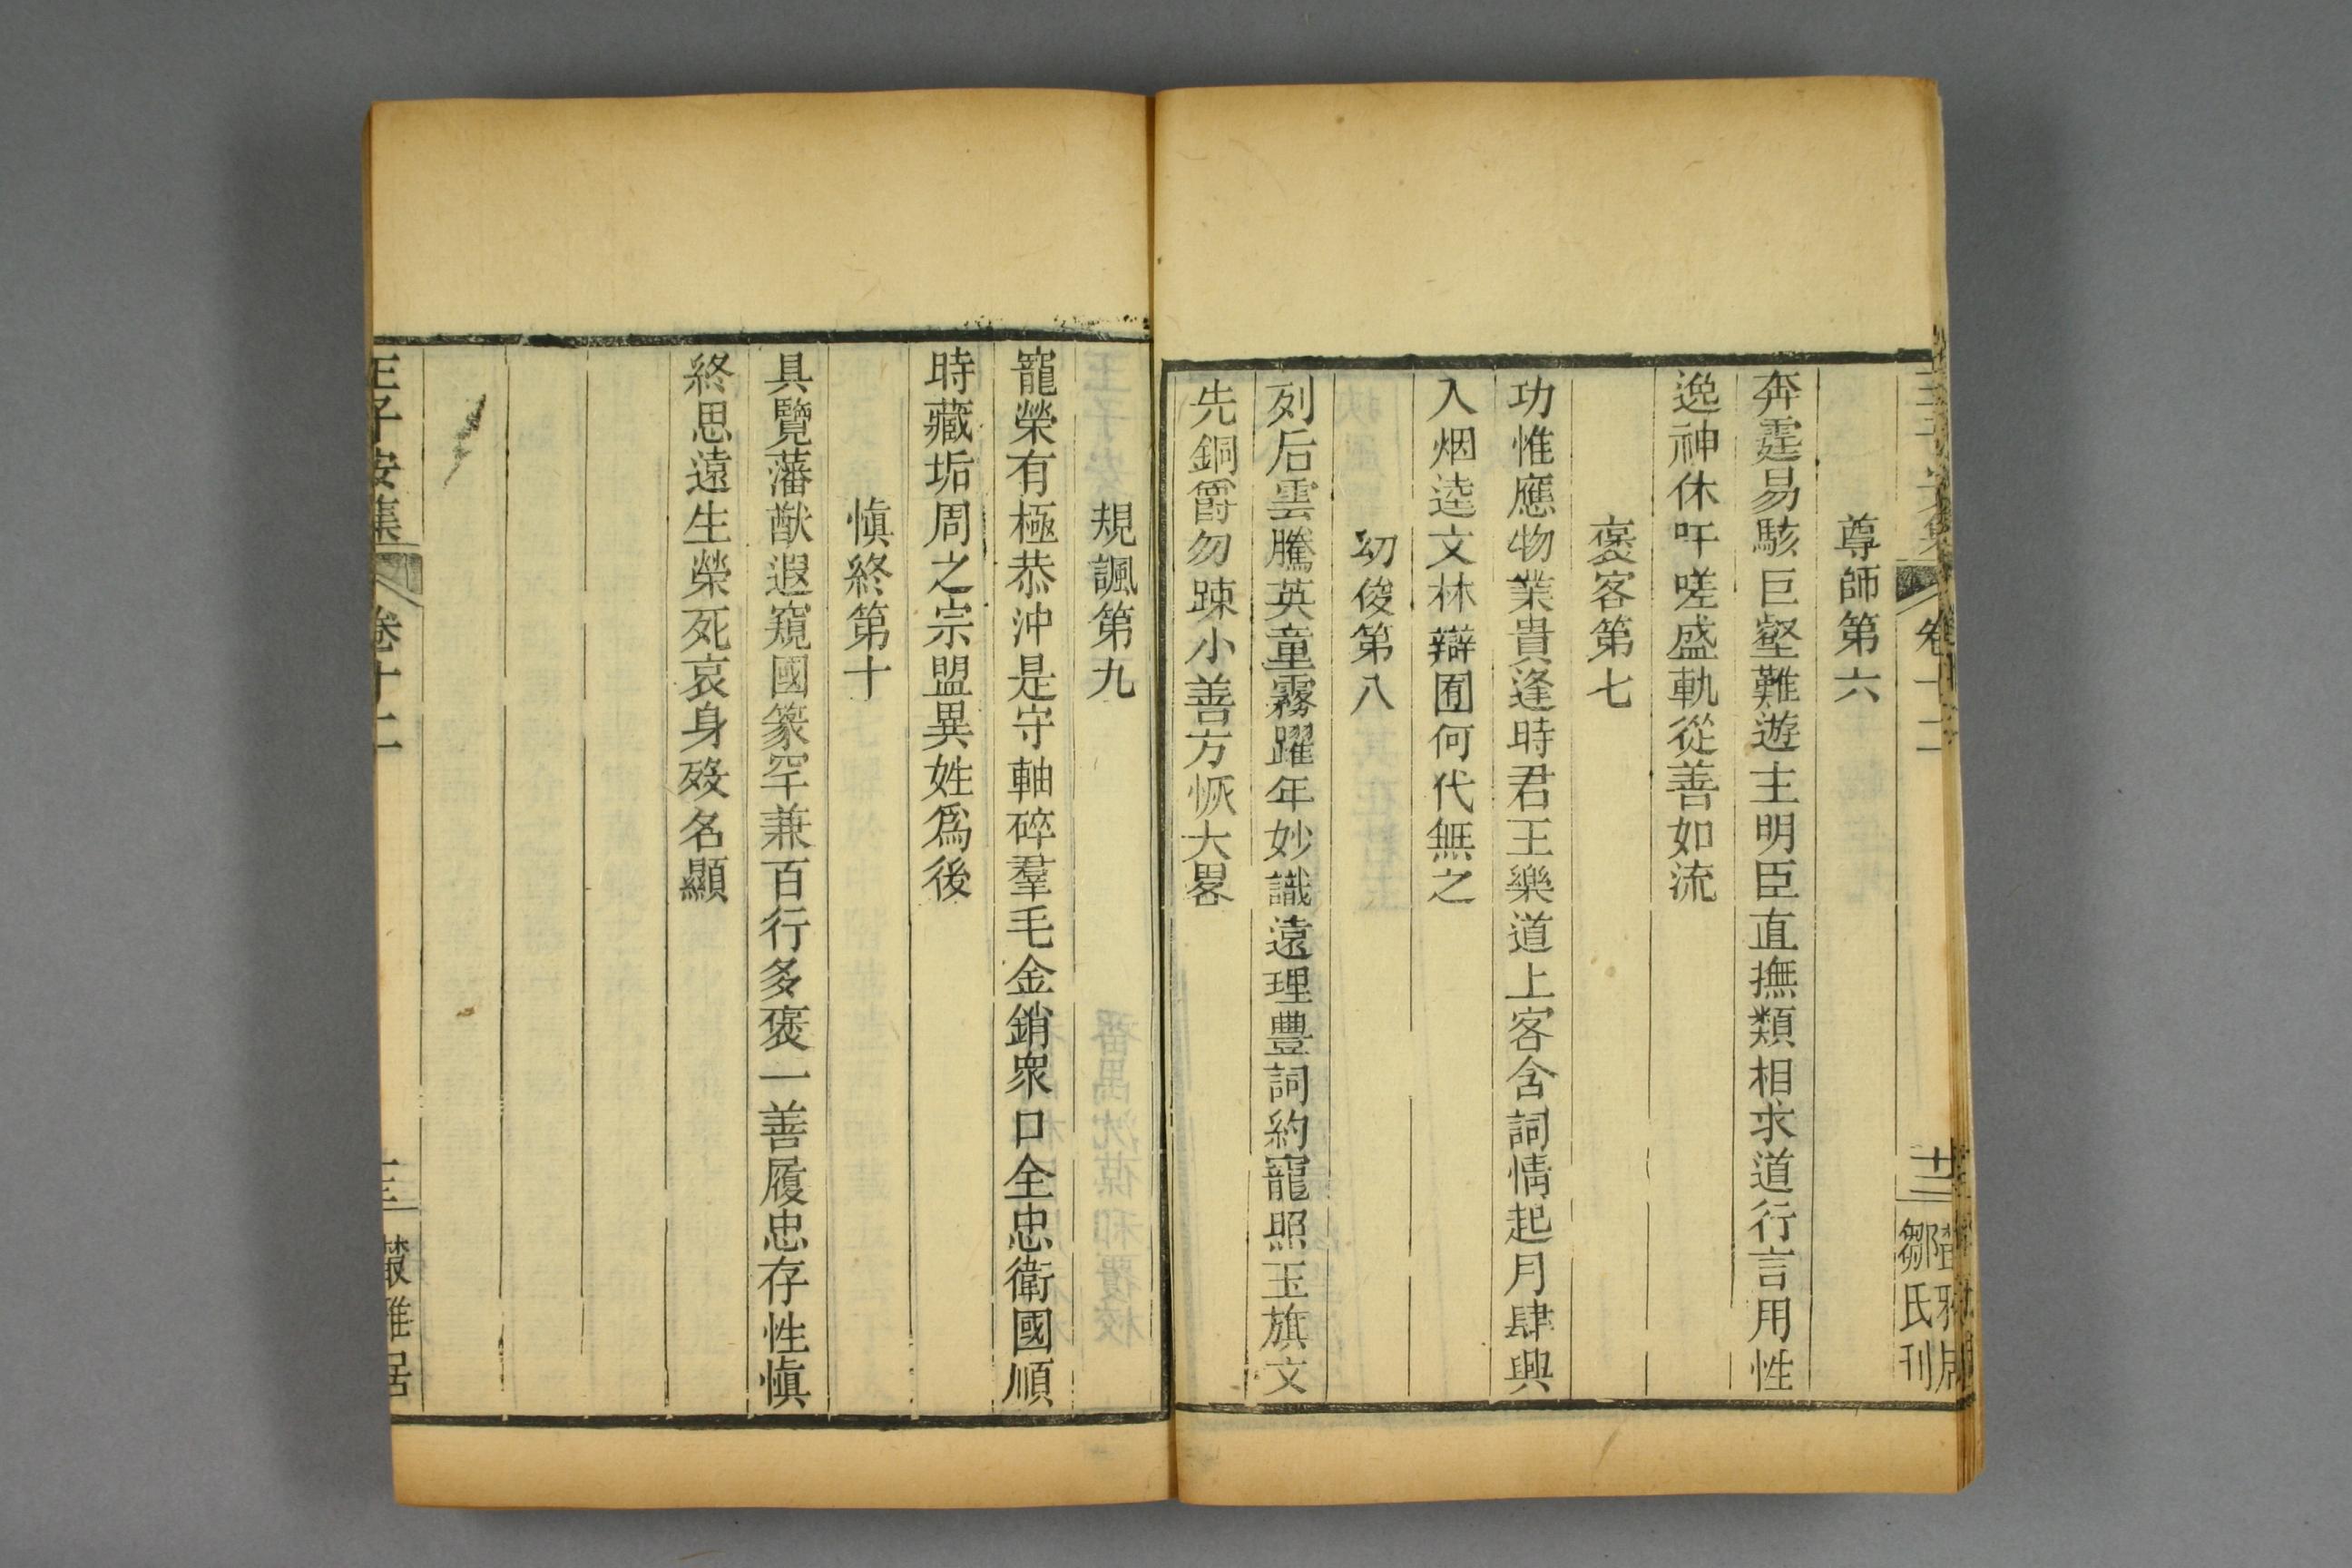 尊師第六
奔霆易駭巨壑難遊主明臣直撫類相求道行言用性
逸神休吁嗟盛軌從善如流
褒客第七
功惟應物業貴逢時君王樂道上客含詞情起月肆興
入烟逵文林辯囿何代無之
幼俊第八
列后雲騰英童霧躍年妙識遠理豊詞約寵照玉旗文
先銅爵勿踈小善方恢大畧
規諷第九
寵榮有極恭沖是守軸碎羣毛金銷衆口全忠衛國順
時藏垢周之宗盟異姓爲後
愼終第十
具覽藩猷遐窺國篆罕兼百行多褒一善履忠存性愼
終思遠生榮死哀身歿名顯
王子安集
卷十二
叢雅居
鄒氏刊